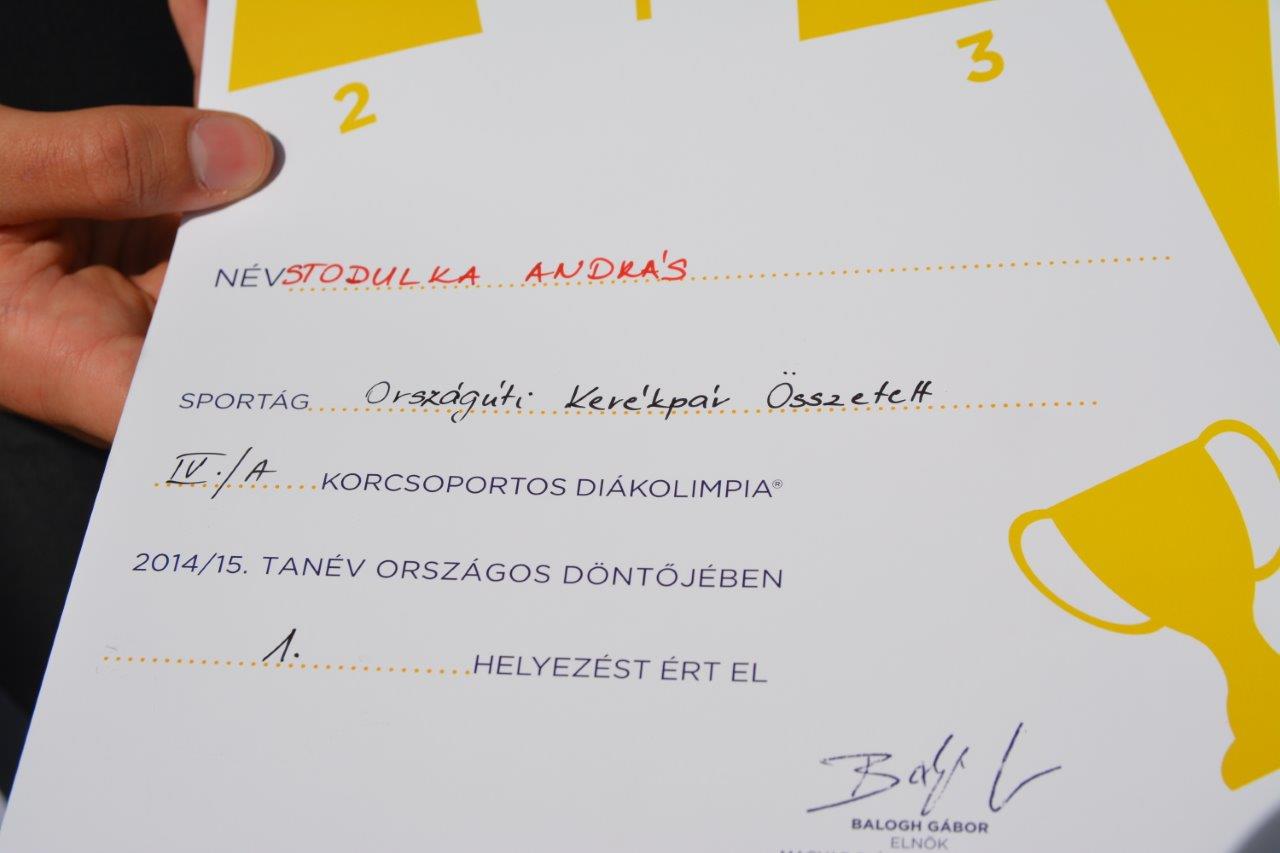 2
3
NÉV STODULKA ANDRÁS
SPORTÁG Országúti Kerékpár Összetett
IV./A KORCSOPORTOS DIÁKOLIMPIA®
2014/15. TANÉV ORSZÁGOS DÖNTŐJÉBEN
1. HELYEZÉST ÉRT EL
BALOGH GÁBOR
ELNÖK